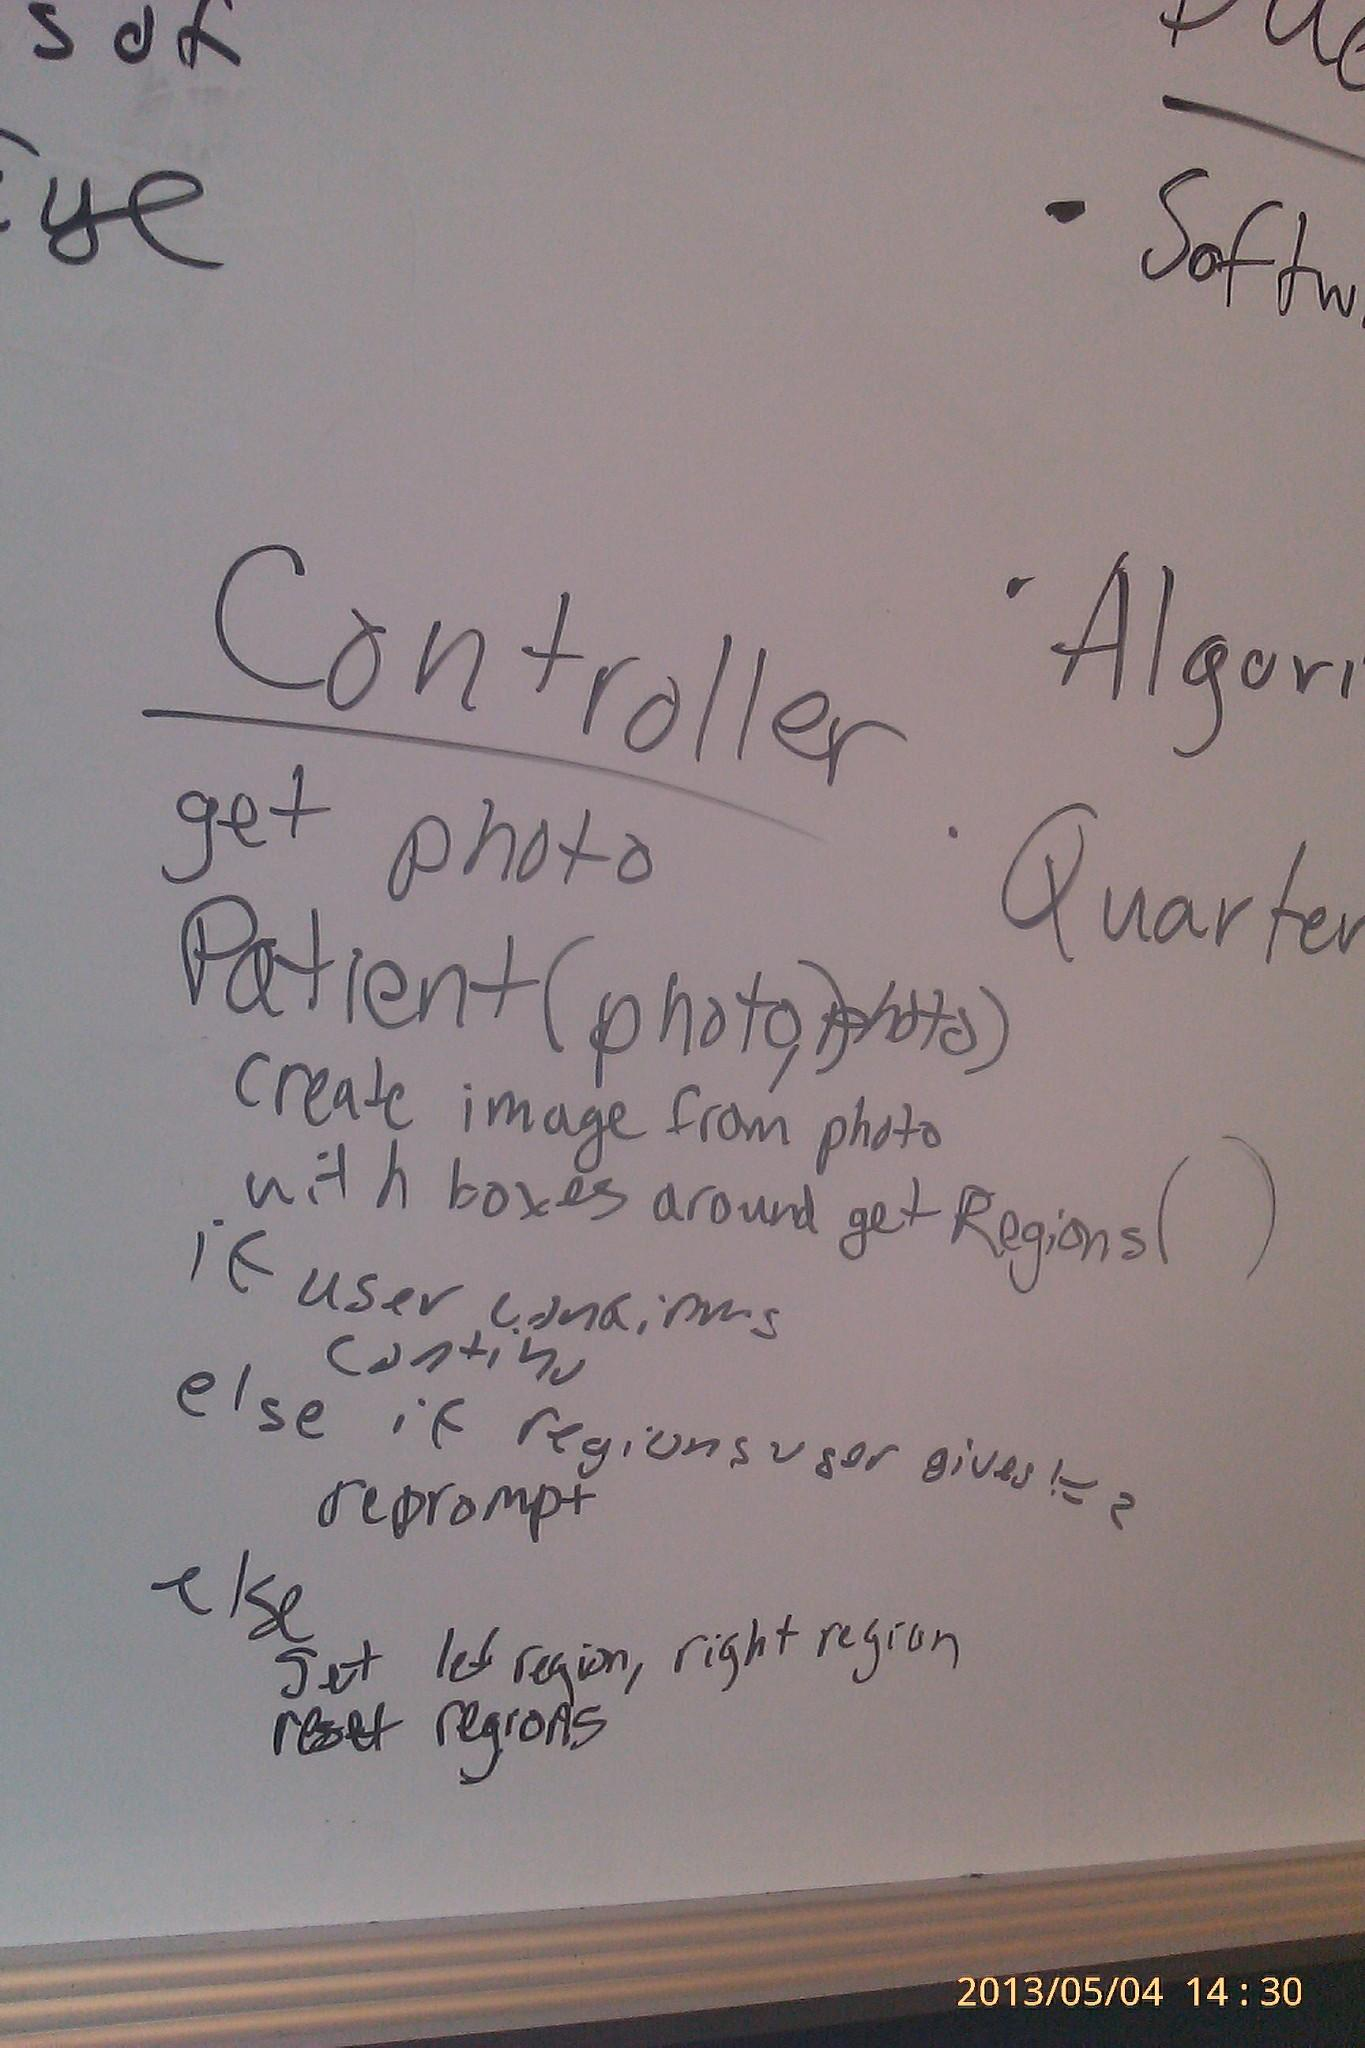 s of
Eye
Softw
Controller
Algori
get photo
Quarter
Patient(photo, photo)
create image from photo
with boxes around getRegions( )
if user confirms
continu
else if regions user gives != 2
reprompt
else
set left region, right region
reset regions
2013/05/04 14:30